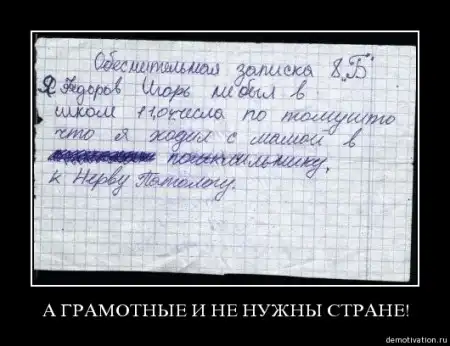 Обеснительная записка 8 „Б“
Я Федоров Игорь небыл в
школ 11.04числа по томушто
что я ходил с мамой в
к Нерву Потологу.
А ГРАМОТНЫЕ И НЕ НУЖНЫ СТРАНЕ!
demotivation.ru